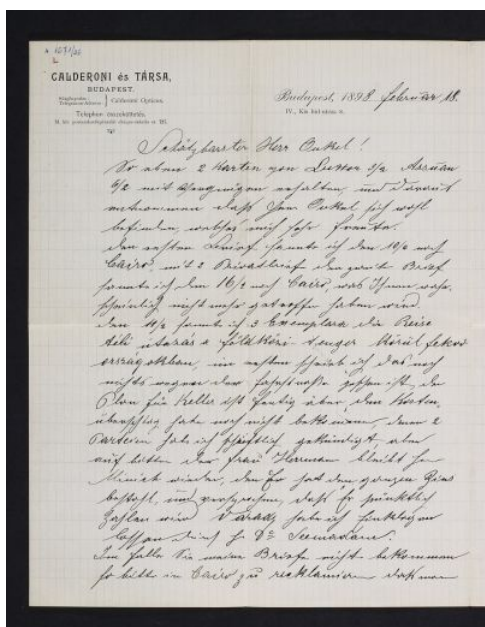 CALDERONI és TÁRSA,
BUDAPEST.
Calderoni Optices.
Telephon összeköttetés.
Budapest, 1898 februar 18.
Schätzbarster Herr Onkel!
So eben 2 Karten von Luxor 3/2 Assuan
6/2 mit erhalten, und daraus
entnommen daß Herr Onkel sich wohl
befinden, welches mich sehr freute.
Den ersten sannte ich den 10/2 nach
Cairo, mit 2 Privatbrief den zweite Brief
sannte ich den 16/2 nach Cairo, was Ihnen wahr-
scheinlich nicht mehr getroffen haben wird
den sannte ich 3 Exemplare die Reise
téli utazás a földközi tenger körül fekvő
országokban, im ersten scheint ich das noch
nichts wegen der ist, der
Plan für Keller ist fertig aber den Kosten-
überschlag habe noch nicht bekommen, denen 2
Parteien habe ich schriftlich gekündigt, aber
auf bitten der Frau Herrman bleibt H
wieder, den Er hat den ganzen Zins
bezahlt, und versprochen, daß Er pünktlich
Zahlen wird habe ich
lassen durch H Dr
Im falle Sie meine Briefe nicht bekommen
so bitte in Cairo zu reklamiren daß man